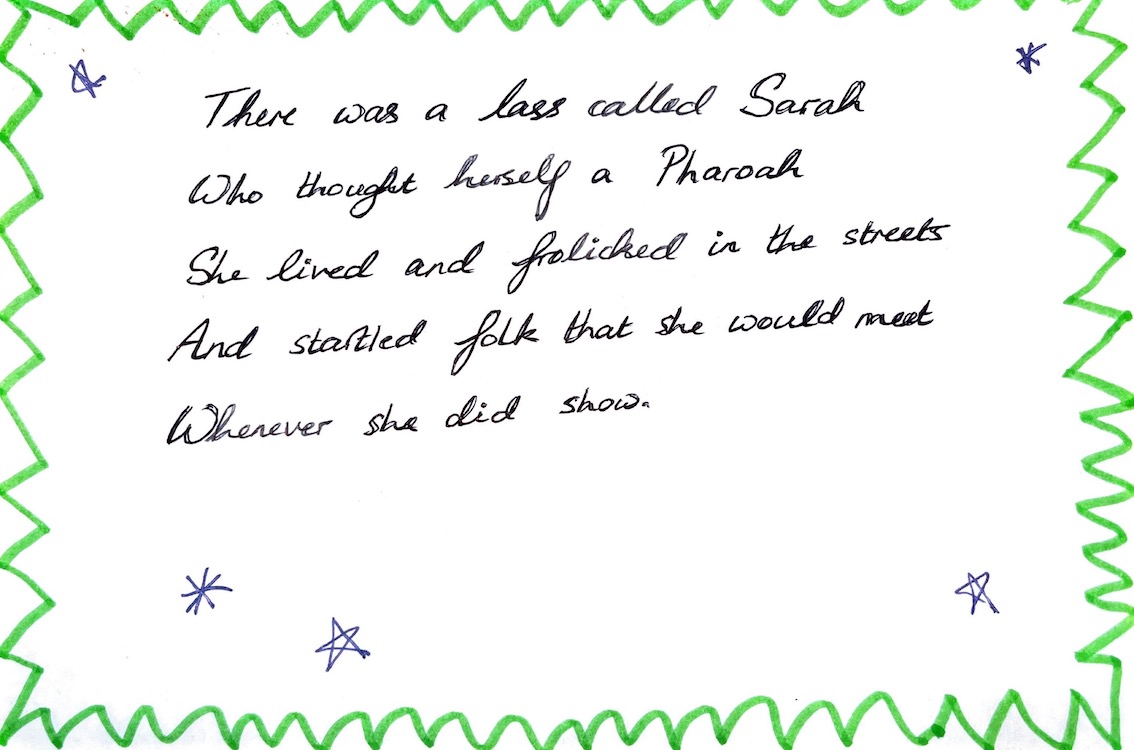 There was a lass called Sarah
Who thought herself a Pharoah
She lived and frolicked in the streets
And startled folk that she would meet
Whenever she did show.